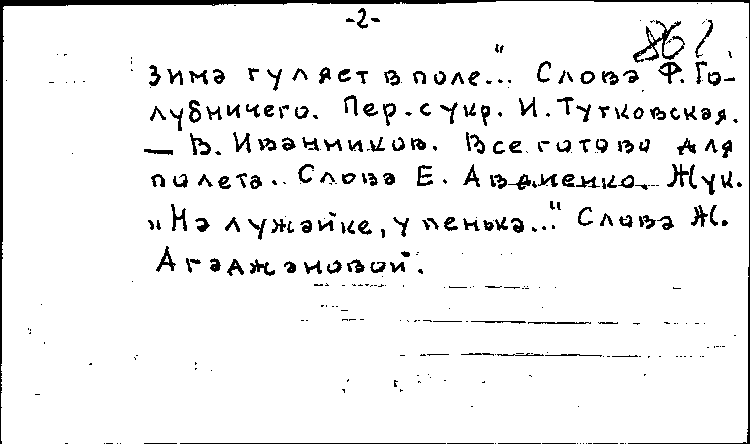 -2-
862
зима гуляет в поле..." Слова Ф. Го-
лубничего. Пер. с укр. И. Тутковская.
— В. Иванников. Все готово для
полета.. Слова Е. Авдиенко. Жук.
„На лужайке, у пенька..." Слова Ж.
Агаджановой.